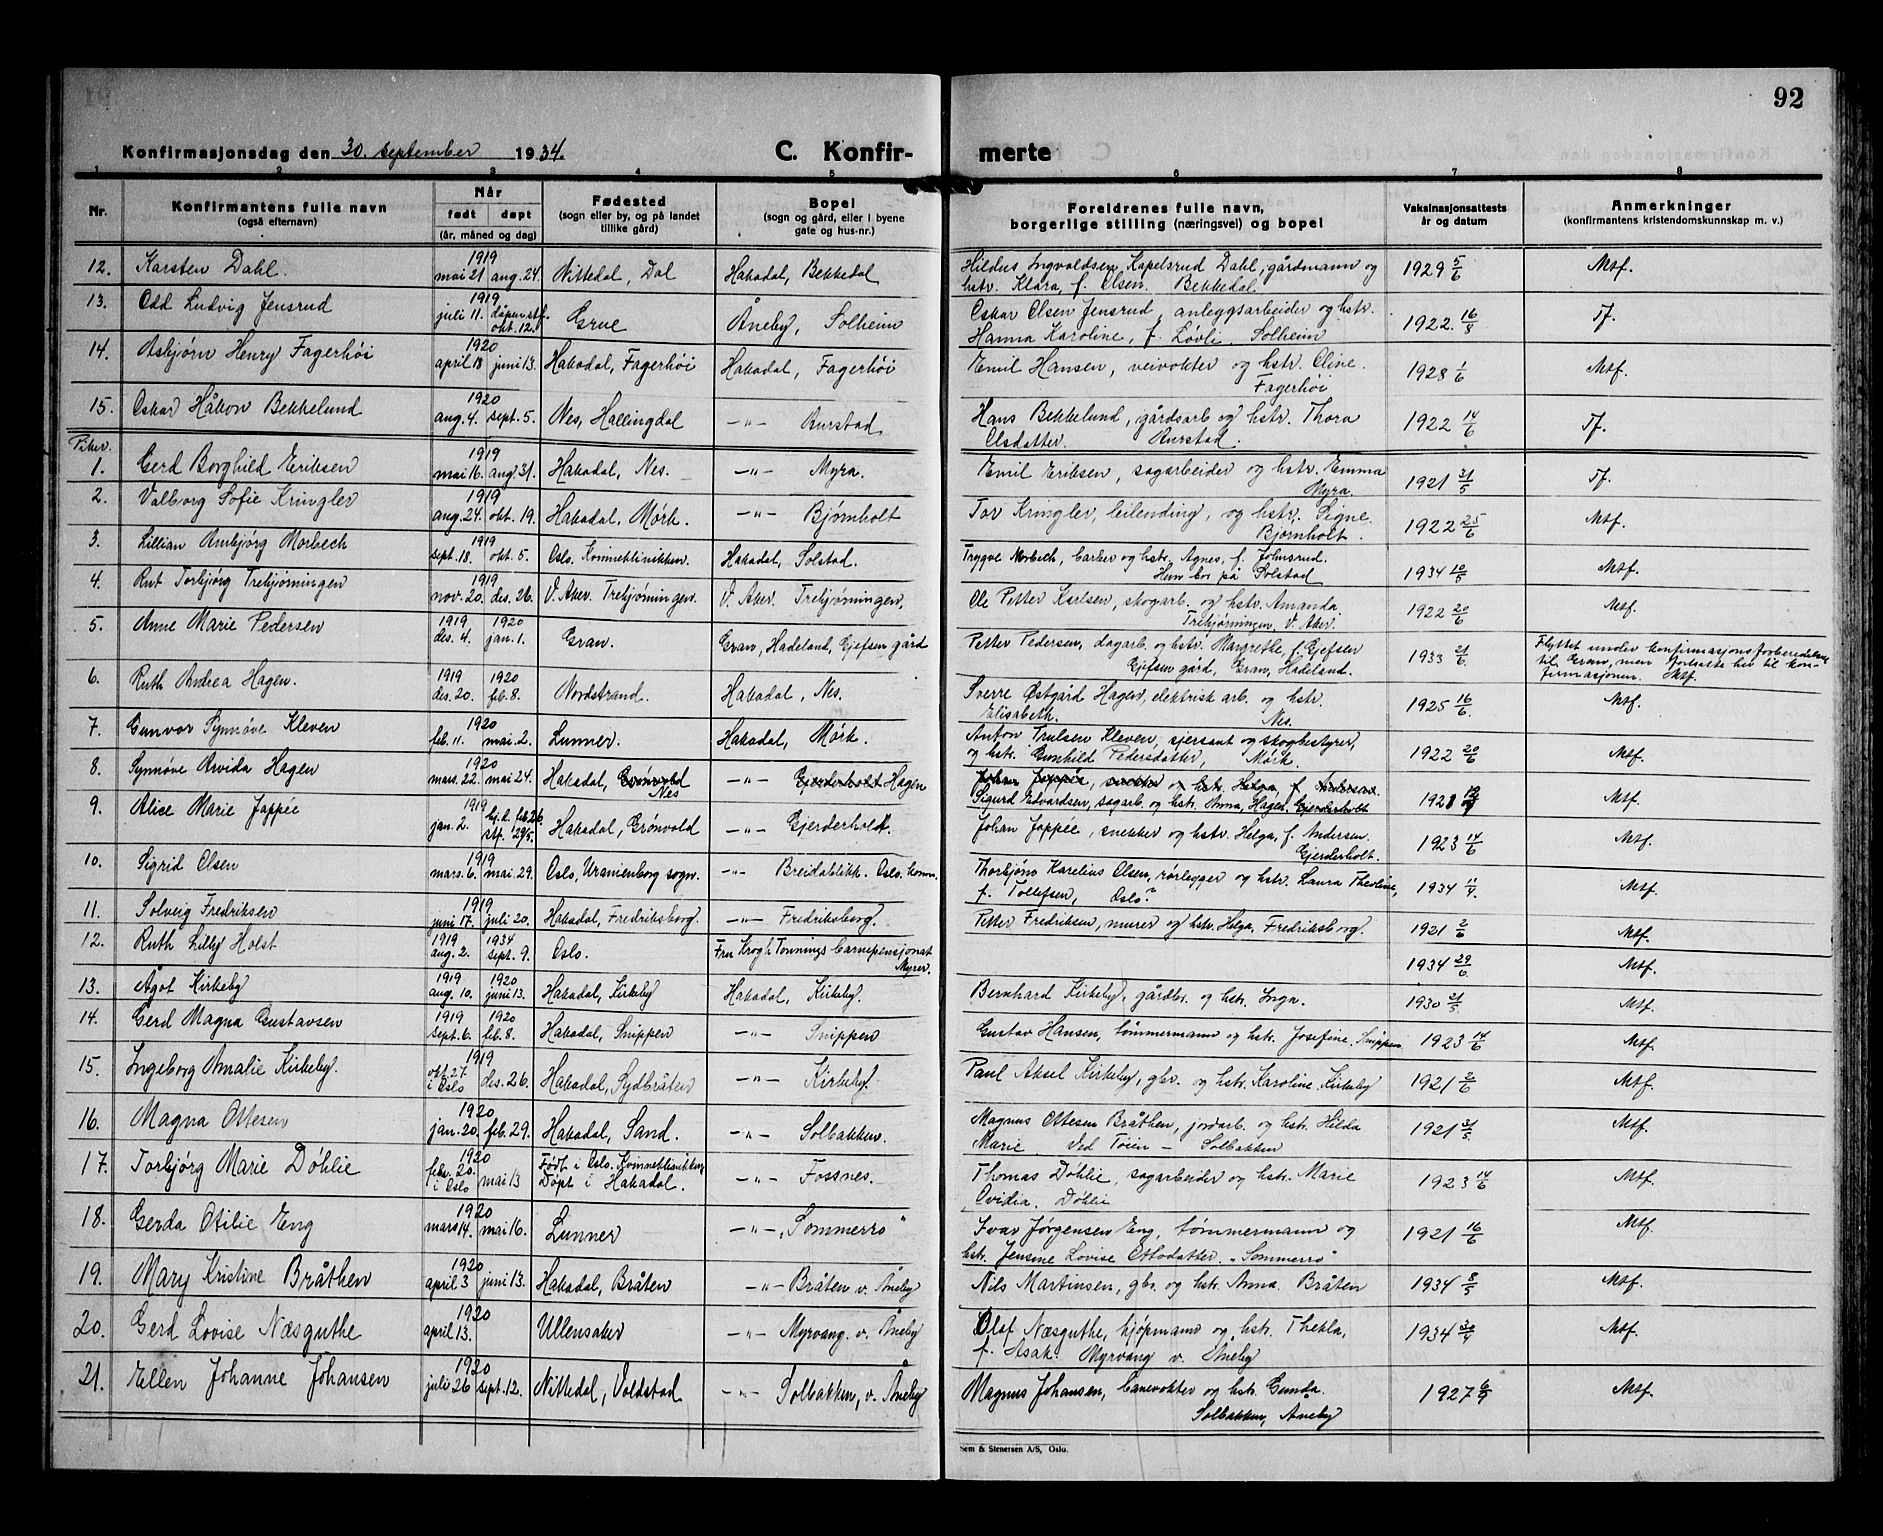 92
Konfirmasjonsdag den 30. september 1934.
C. Konfir-merte
1 2 3 4 5 6 7 8
Nr.
Konfirmantens fulle navn (også efternavn)
Når født døpt (år, måned og dag)
Fødested (sogn eller by, og på landet tillike gård)
Bopel (sogn og gård, eller i byene gate og hus-nr.)
Foreldrenes fulle navn, borgerlige stilling (næringsvei) og bopel
Vaksinasjonsattests år og datum
Anmerkninger (konfirmantens kristendomskunnskap m. v.)
12. Karsten Dahl. 1919 mai 21 aug. 24. Nittedal, Dal Hakadal, Bekkedal Hildus Ingvaldsen Kapelsrud Dahl, gårdmann og hstr. Klara, f. Olsen. Bekkedal. 1929 5/6 Mtf.
13. Odd Ludvig Jensrud 1919 juli 11. dåpen stf. okt. 12. Grue Åneby, Solheim Oskar Olsen Jensrud, anleggsarbeider og hstr. Hanna Karoline, f. Løvli. Solheim 1922. 16/8 Tf.
14. Asbjørn Henry Fagerhøi 1920 april 18 juni 13. Hakadal, Fagerhøi Hakadal, Fagerhøi Emil Hansen, veivokter og hstr. Oline. Fagerhøi 1928 1/6 Mtf.
15. Oskar Håkon Bekkelund 1920 aug. 4. sept. 5. Nes, Hallingdal -"- Aurstad Hans Bekkelund, gårdsarb. og hstr. Thora Olsdatter. Aurstad. 1922 14/6 Tf.
Piker.
1. Gerd Borghild Eriksen 1919 mai 16. aug. 31. Hakadal, Nes. -"- Myra. Emil Eriksen, sagarbeider og hstr. Emma Myra. 1921 31/5 Tf.
2. Valborg Sofie Kringler 1919 aug. 24. okt. 19. Hakadal, Mørk. -"- Bjørnholt Tor Kringler, leilending, og hstr. Signe. Bjørnholt. 1922 25/6 Mtf.
3. Lillian Annbjørg Morbech 1919 sept. 18. okt. 5. Oslo. Kvinneklinikken. Hakadal, Solstad. Trygve Morbech, barber og hstr. Agnes, f. Johnsrud. Hun bor på Solstad 1934 10/5 Mtf.
4. Rut Torbjørg Trehjørningen 1919 nov. 20. des. 26. V. Aker. Trehjørningen. V. Aker. Trehjørningen. Ole Petter Karlsen, skogarb. og hstr. Amanda. Trehjørningen, V. Aker. 1922 20/6 Mtf.
5. Anne Marie Pedersen 1919 des. 4. 1920 jan. 1. Gran. Gran, Hadeland, Gjefsen gård Petter Pedersen, dagarb. og hstr. Margrethe, f. Gjefsen Gjefsen gård, Gran, Hadeland. 1933 21/6. Flyttet under konfirmasjonsforberedelsen til Gran, men fortsatte her til konfirmasjonen. Mtf.
6. Ruth Andrea Hagen. 1919 des. 20. 1920 feb. 8. Nordstrand. Hakadal, Nes. Sverre Østgård Hagen, elektrisk arb. og hstr. Elisabeth. Nes. 1925 16/6. Mtf.
7. Gunvor Synnøve Kleven 1920 feb. 11. mai. 2. Lunner. Hakadal, Mørk. Anton Trulsen Kleven, sjersant og skogbestyrer, og hstr. Gunhild Pedersdatter, Mørk. 1922 20/6 Mtf.
8. Synnøve Arvida Hagen 1920 mars. 22. mai 24. Hakadal, Grønvold Nes -"- Gjerderholt Hagen Johan Jappée, snekker og hstr. Helga, f. Andersen. Sigurd Edvardsen, sagarb. og hstr. Anna, Hagen. Gjerderholt 1921 Mtf.
9. Alice Marie Jappée 1919 jan. 2. hj.d. feb. 26. stf. 29/5. Hakadal, Grønvold -"- Gjerderholt. Johan Jappée, snekker og hstr. Helga, f. Andersen. Gjerderholt. 1923 14/6 Mtf.
10. Sigrid Olsen 1919 mars. 6. mai. 29. Oslo, Uranienborg sogn. -"- Breidablikk. Oslo komm. Thorbjørn Karelius Olsen, rørlegger og hstr. Laura Theoline, f. Tollefsen, Oslo? 1934 11/9. Mtf.
11. Solveig Fredriksen 1919 juni 17. juli 20. Hakadal, Fredriksborg. -"- Fredriksborg. Petter Fredriksen, murer og hstr. Helga. Fredriksborg. 1921 2/6 Mtf.
12. Ruth Lilly Holst 1919 aug. 2. 1934 sept. 9. Oslo. Fru Krogh Tonnings barnepensjonat Myrer. 1934 29/6. Mtf.
13. Ågot Kirkeby 1919 aug. 10. 1920 juni 13. Hakadal, Kirkeby Hakadal, Kirkeby. Bernhard Kirkeby, gårdbr. og hstr. Inga. 1930 21/5 Mtf.
14. Gerd Magna Gustavsen 1919 sept. 6. 1920 feb. 8. Hakadal, Snippen -"- Snippen Gustav Hansen, tømmermann og hstr. Josefine. Snippen 1923 14/6 Mtf.
15. Ingeborg Amalie Kirkeby. 1919 okt. 27. i Oslo des. 26. Hakadal, Sydbråten -"- Kirkeby. Paul Aksel Kirkeby, gbr. og hstr. Karoline. Kirkeby 1921 2/6 Mtf.
16. Magna Ottesen 1920 jan. 20. feb. 29. Hakadal, Sand. -"- Solbakken. Magnus Ottesen Bråthen, jordarb. og hstr. Hilda Marie Ved Tøien - Solbakken 1921 31/5 Mtf.
17. Torbjørg Marie Døhlie 1920 febr. 20. i Oslo mai 13 Født i Oslo. Kvinneklinikken Døpt i Hakadal. -"- Fossnes. Thomas Døhlie, sagarbeider og hstr. Marie Ovidia. Døhlie 1923 14/6 Mtf.
18. Gerda Otilie Eng 1920 mars 14. mai 16. Lunner -"- "Sommerro" Ivar Jørgensen Eng, tømmermann og hstr. Jensine Lovise Ottodatter. "Sommerro" 1921 16/6 Mtf.
19. Mary Kristine Bråthen 1920 april 3 juni 13. Hakadal, Bråten -"- Bråten v. Åneby Nils Martinsen, gbr. og hstr. Anna. Bråten 1934 8/5 Mtf.
20. Gerd Lovise Næsguthe 1920 april 13. Ullensaker -"- Myrvang. v. Åneby Olaf Næsguthe, kjøpmann og hstr. Thekla, f. Asak. Myrvang v. Åneby 1934 30/4 Mtf.
21. Ellen Johanne Johansen 1920 juli 26 sept. 12. Nittedal, Voldstad -"- Solbakken, v. Åneby Magnus Johansen, banevokter og hstr. Gunda. Solbakken, Åneby 1927 6/9 Mtf.
Sem & Stenersen A/S, Oslo.